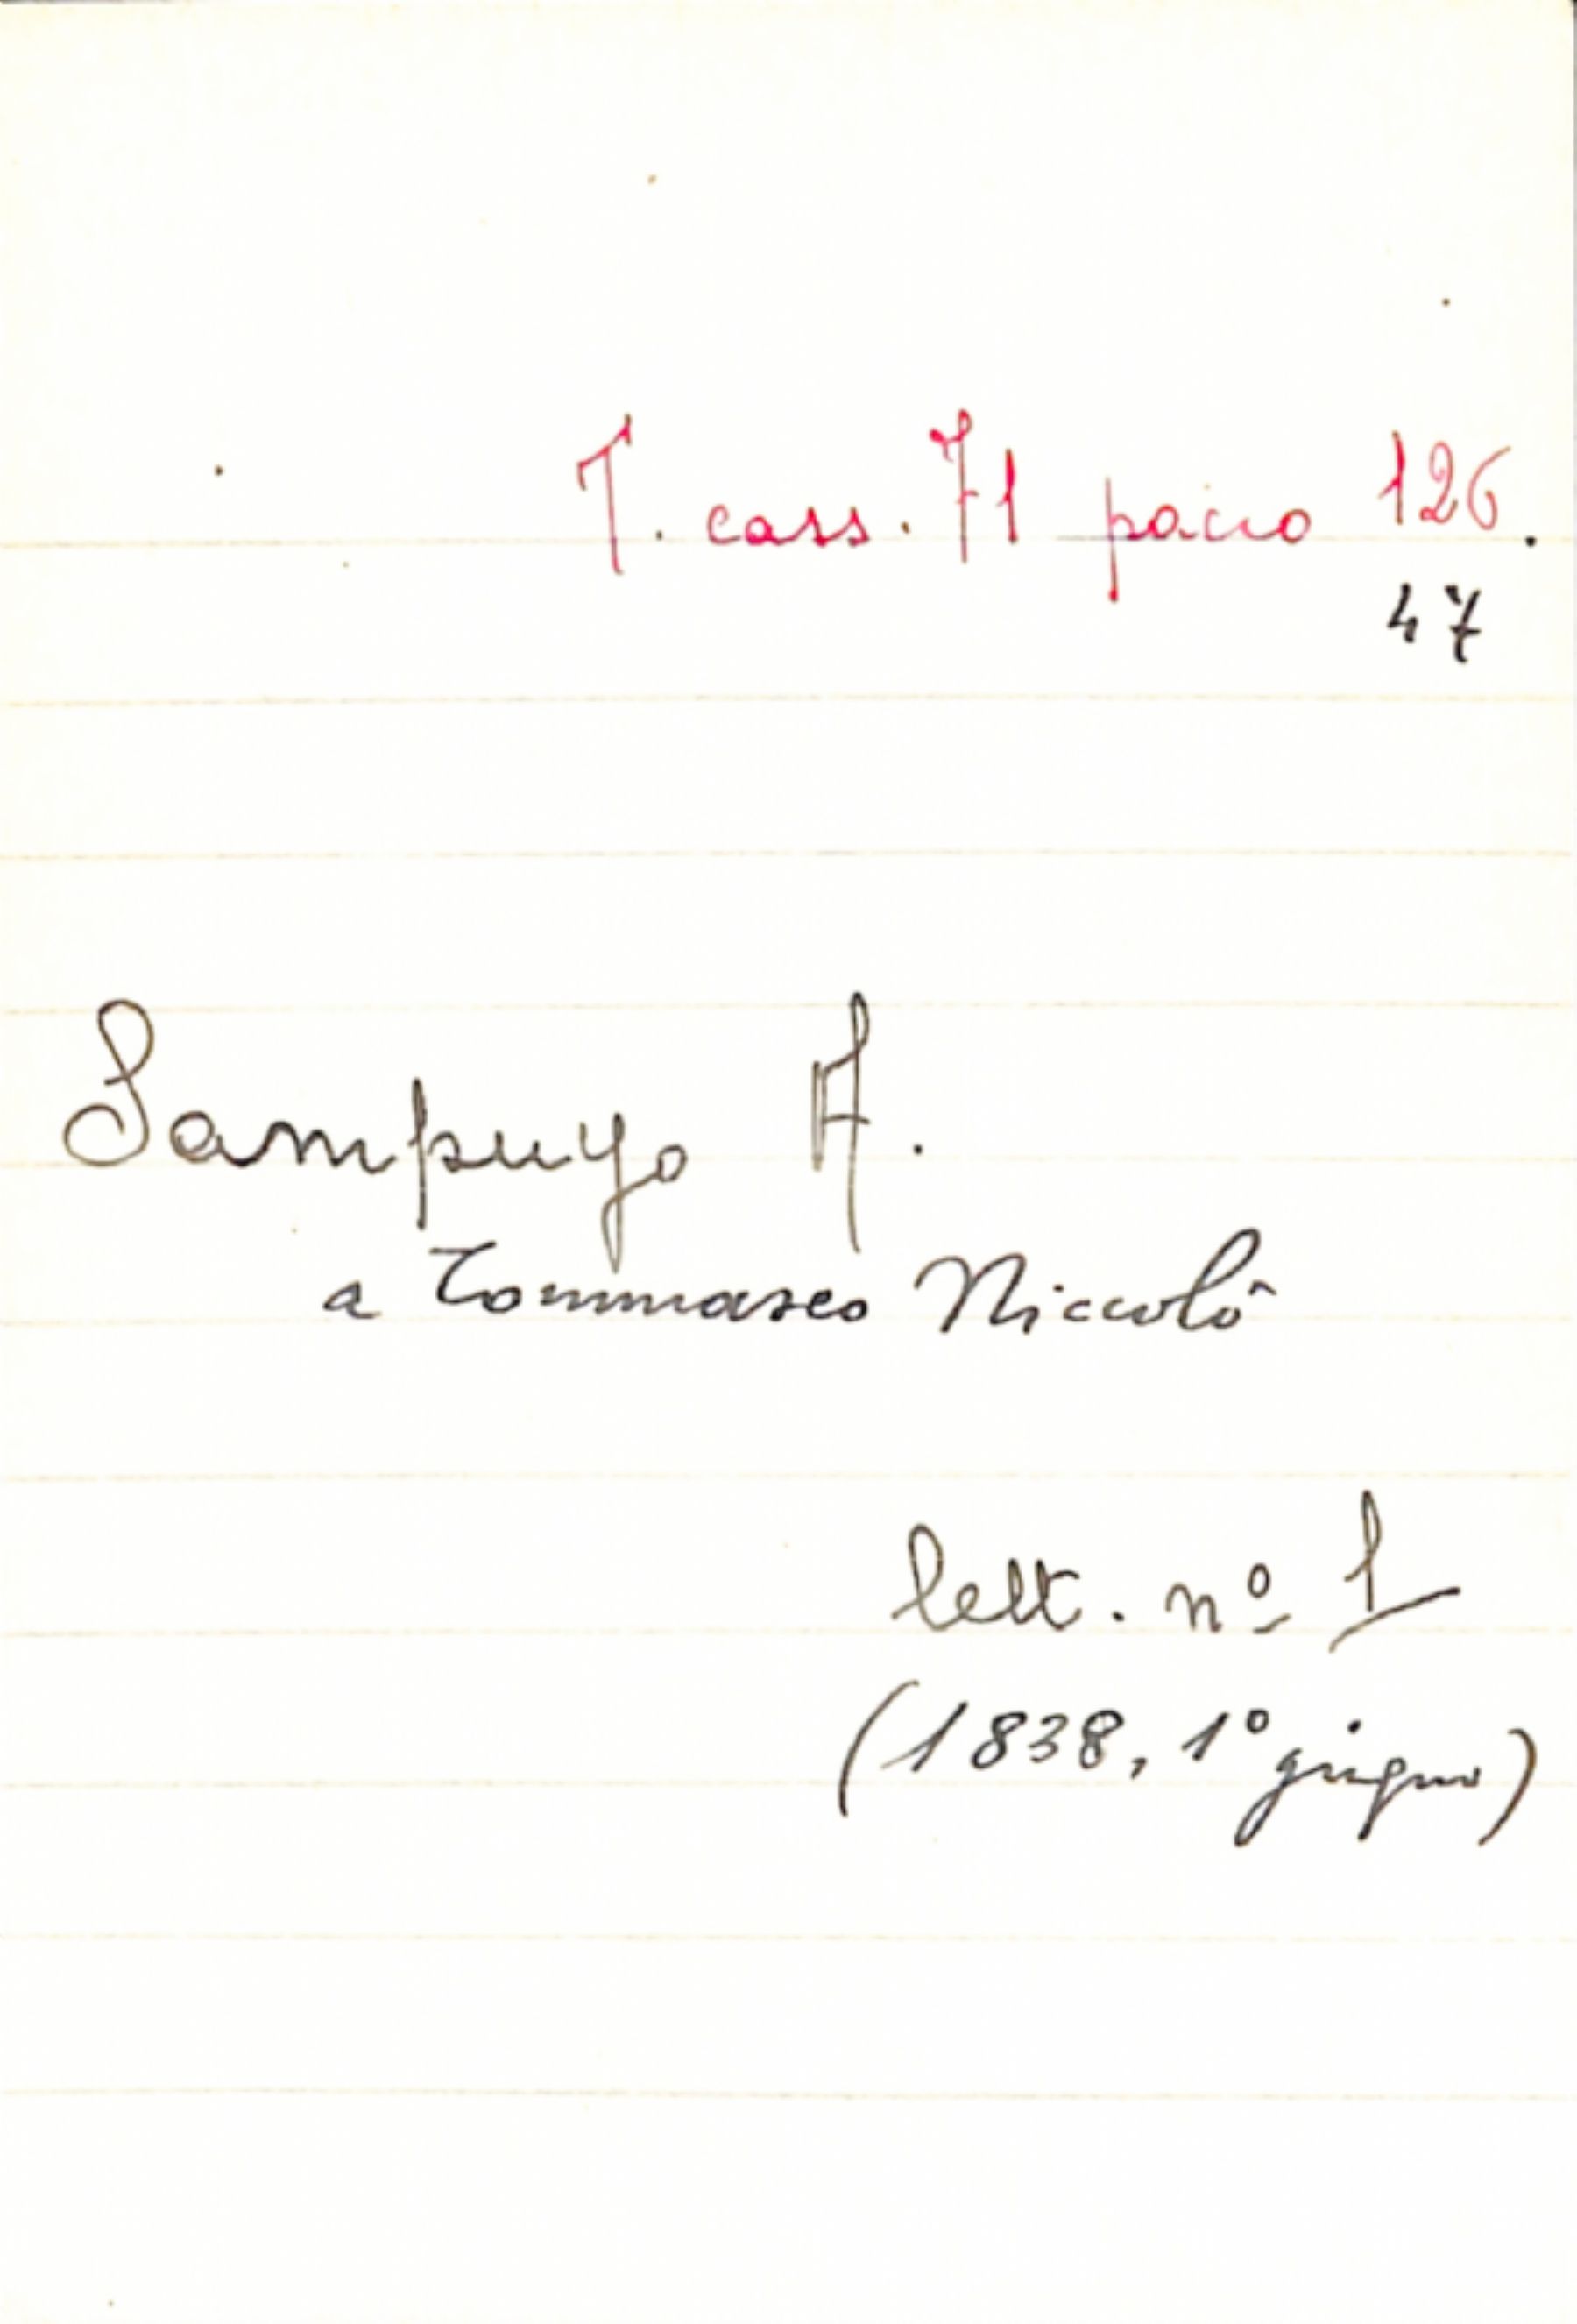 T. cass. 71 pacco 126.
47
Sampuyo A.
a Tommaseo Niccolò
lett. nº 1
(1838, 1º giugno)